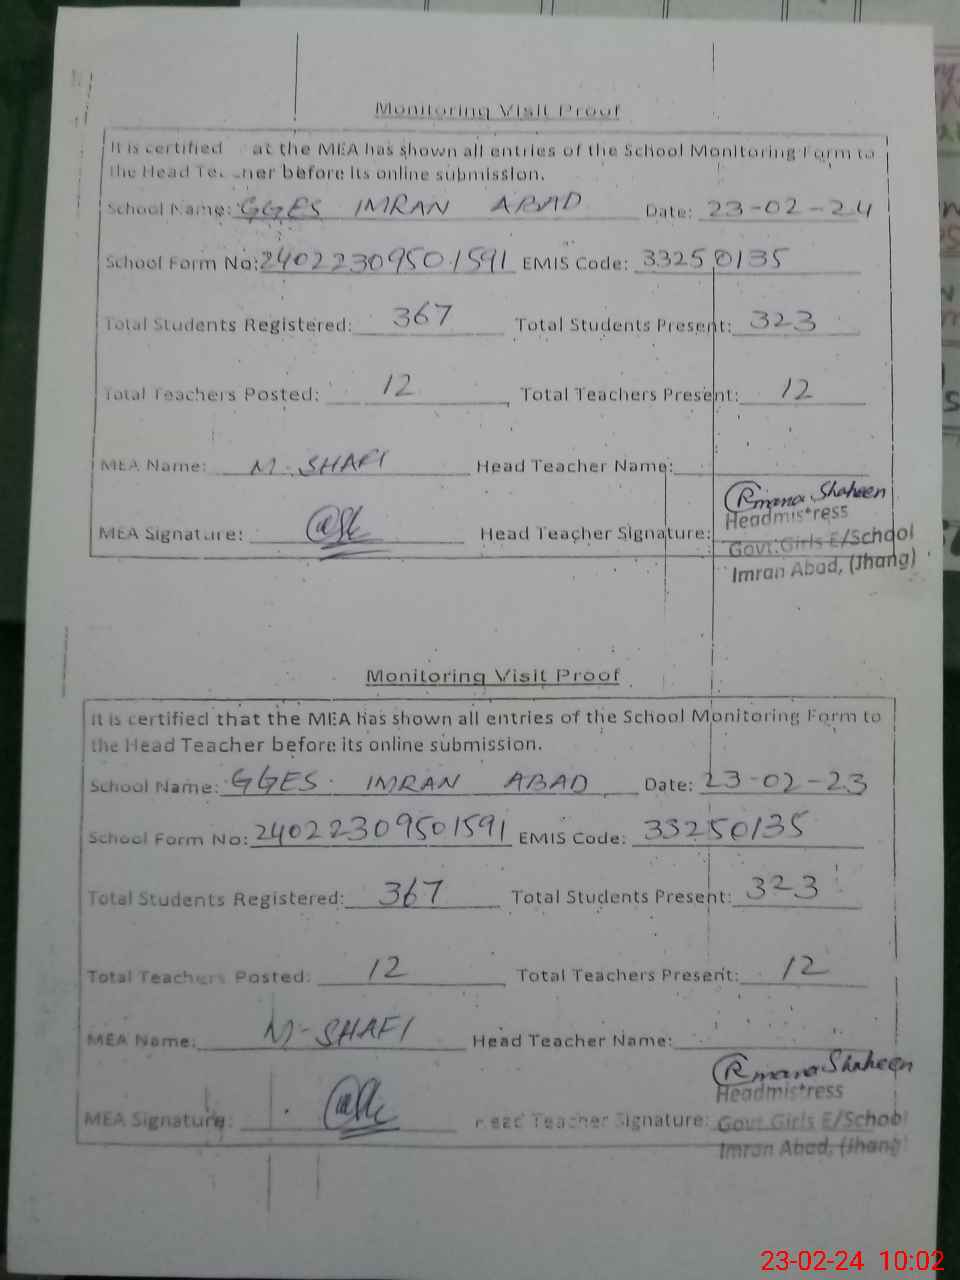 Monitoring Visit Proof
It is certified at the MEA has shown all entries of the School Monitoring Form to
the Head Te ner before its online submission.
School Name: GGES IMRAN ABAD Date: 23-02-24
School Form No: 24022309501591 EMIS Code: 33250135
Total Students Registered: 367 Total Students Present: 323
Total Teachers Posted: 12 Total Teachers Present: 12
MEA Name: M-SHAFI Head Teacher Name:
MEA Signature: Head Teacher Signature:
Shaheen
Headmistress
Govt. Girls E/School
Imran Abad, (Jhang)
Monitoring Visit Proof
It is certified that the MEA has shown all entries of the School Monitoring Form to
the Head Teacher before its online submission.
School Name: GGES IMRAN ABAD Date: 23-02-23
School Form No: 24022309501591 EMIS Code: 33250135
Total Students Registered: 367 Total Students Present: 323
Total Teachers Posted: 12 Total Teachers Present: 12
MEA Name: M-SHAFI Head Teacher Name:
MEA Signature: Head Teacher Signature:
Shaheen
Headmistress
Govt. Girls E/School
Imran Abad, (Jhang)
23-02-24 10:02